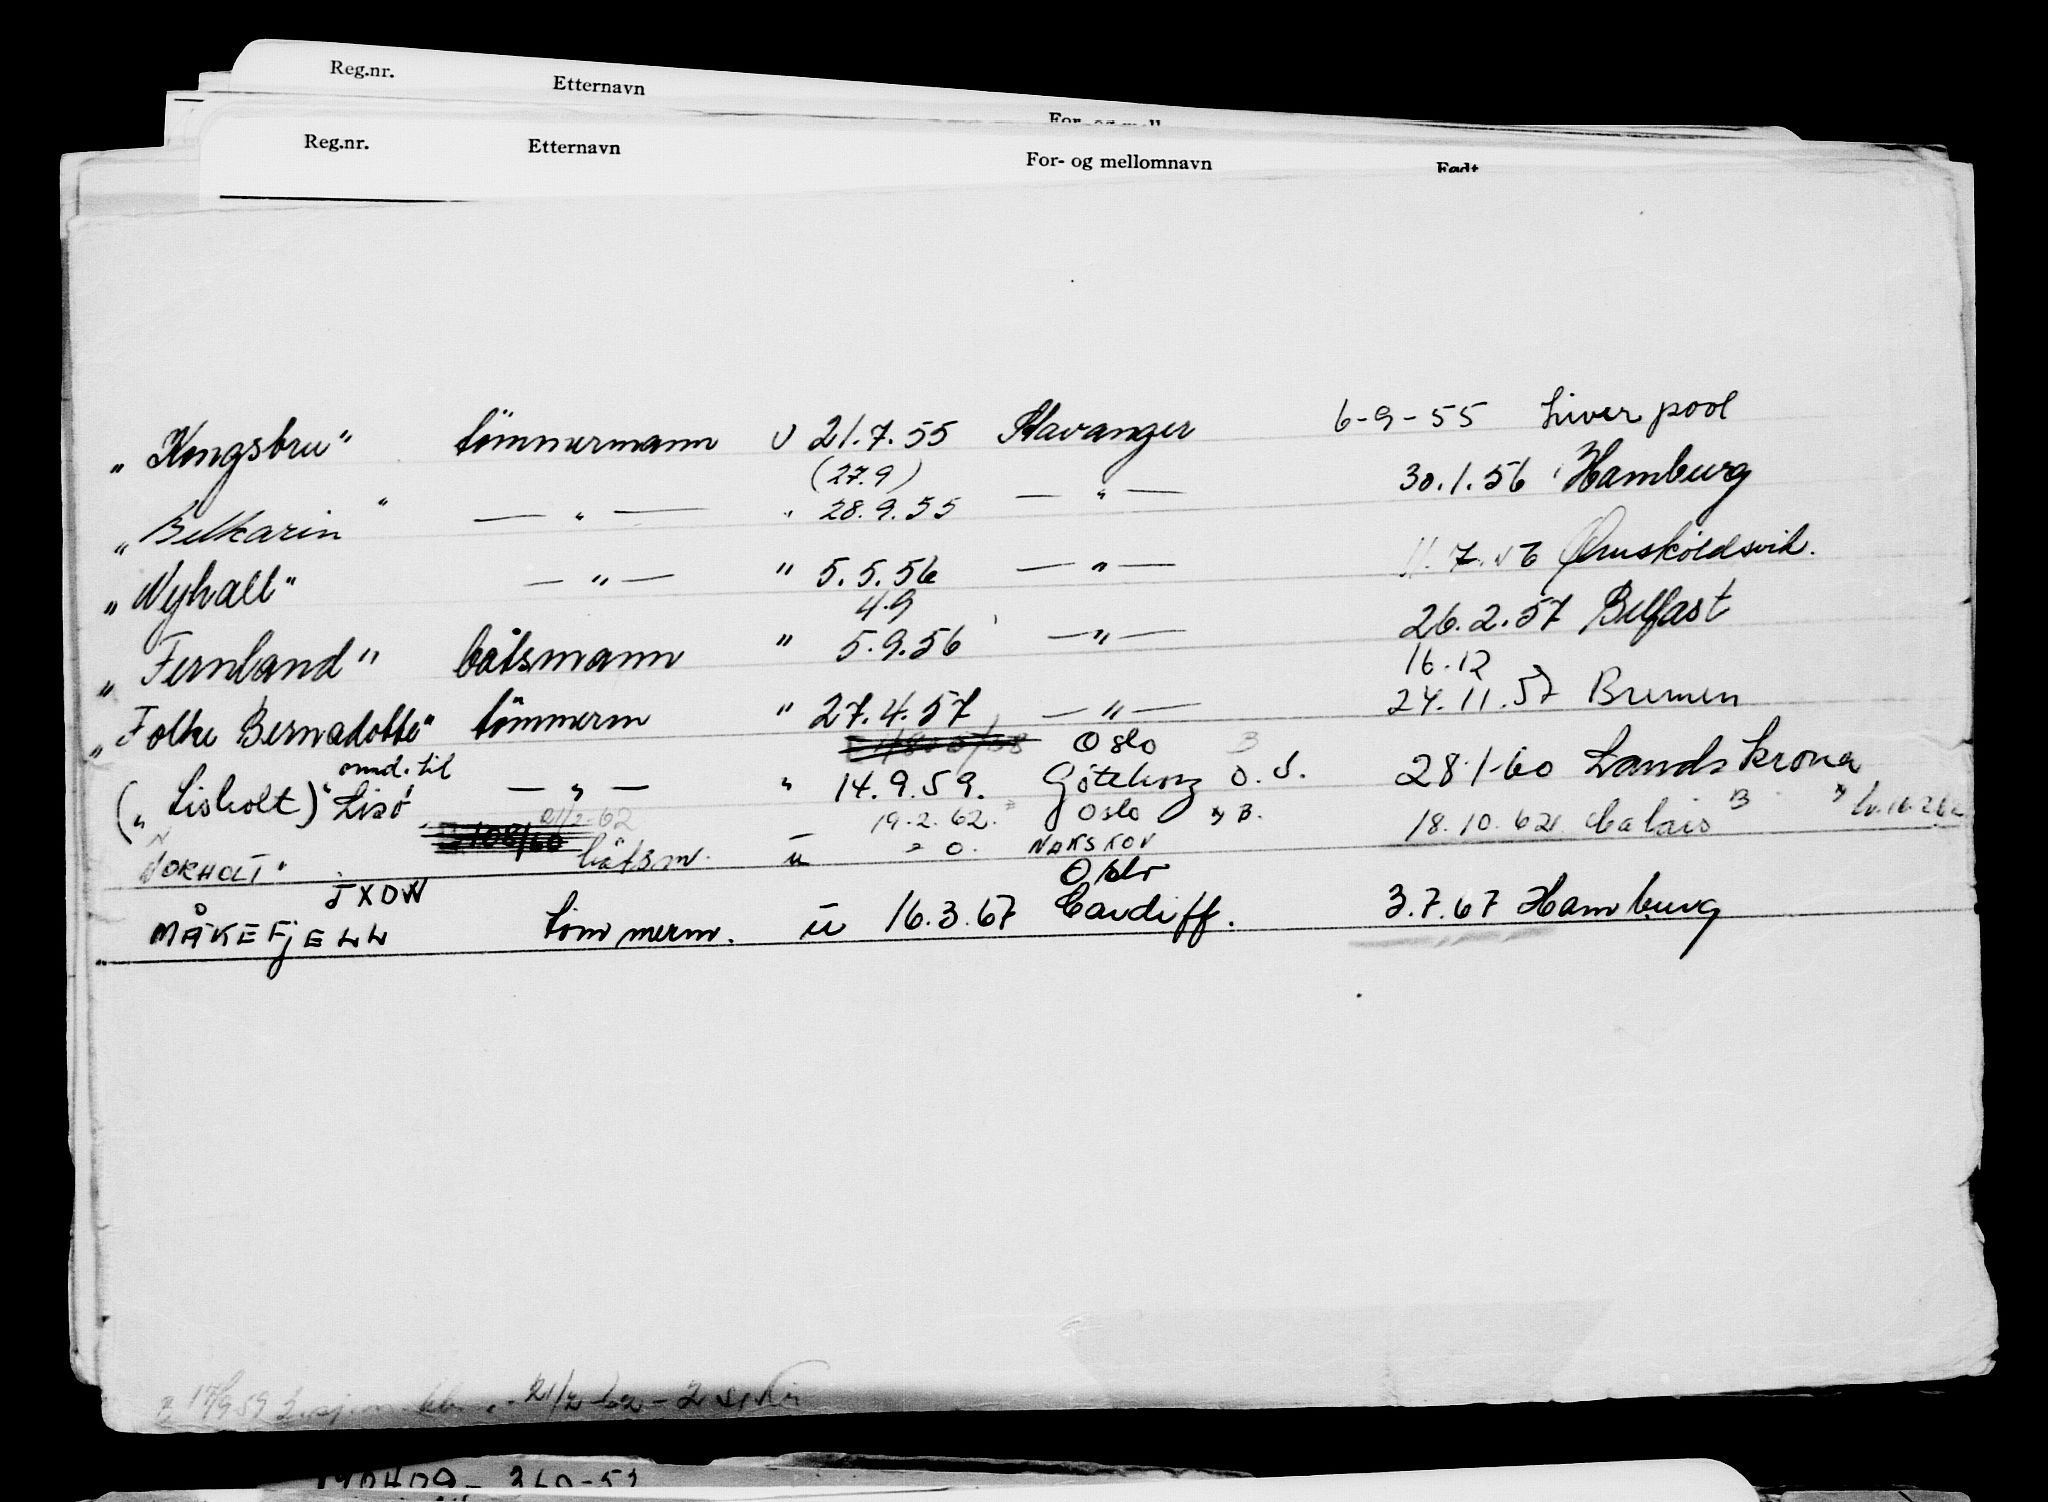 Reg.nr. Etternavn
Reg.nr. Etternavn For- og mellomnavn Født
„Kongsbru" tömmermann u 21.7.55 Stavanger 6-9-55 Liverpool
(27.9)
„Belkarin" — „ — „ 28.9.55 — „ — 30.1.56 Hamburg
„Nyhall" — „ — " 5.5.56 — „ — 11.7.56 Ørnsköldsvik.
4.9
„Fernland" båtsmann " 5.9.56 — „ — 26.2.57 Belfast
16.12
„Folke Bernadotte" tömmerm " 27.4.57 — „ — 24.11.57 Bremen
Oslo B
(„Lisholt)" omd. til Lisö — „ — „ 14.9.59. Göteborg O.S. 28-1-60 Landskrona
21/2-62 19.2.62. Oslo B. 18.10.62 Calais B
NORHOLT" båtsm. u = O. NAKSKOV
Oslo
JXDW
„MÅKEFJELL tömmerm. u 16.3.67 Cardiff. 3.7.67 Hamburg
17/9 59 21/2-62 - 2
360-53